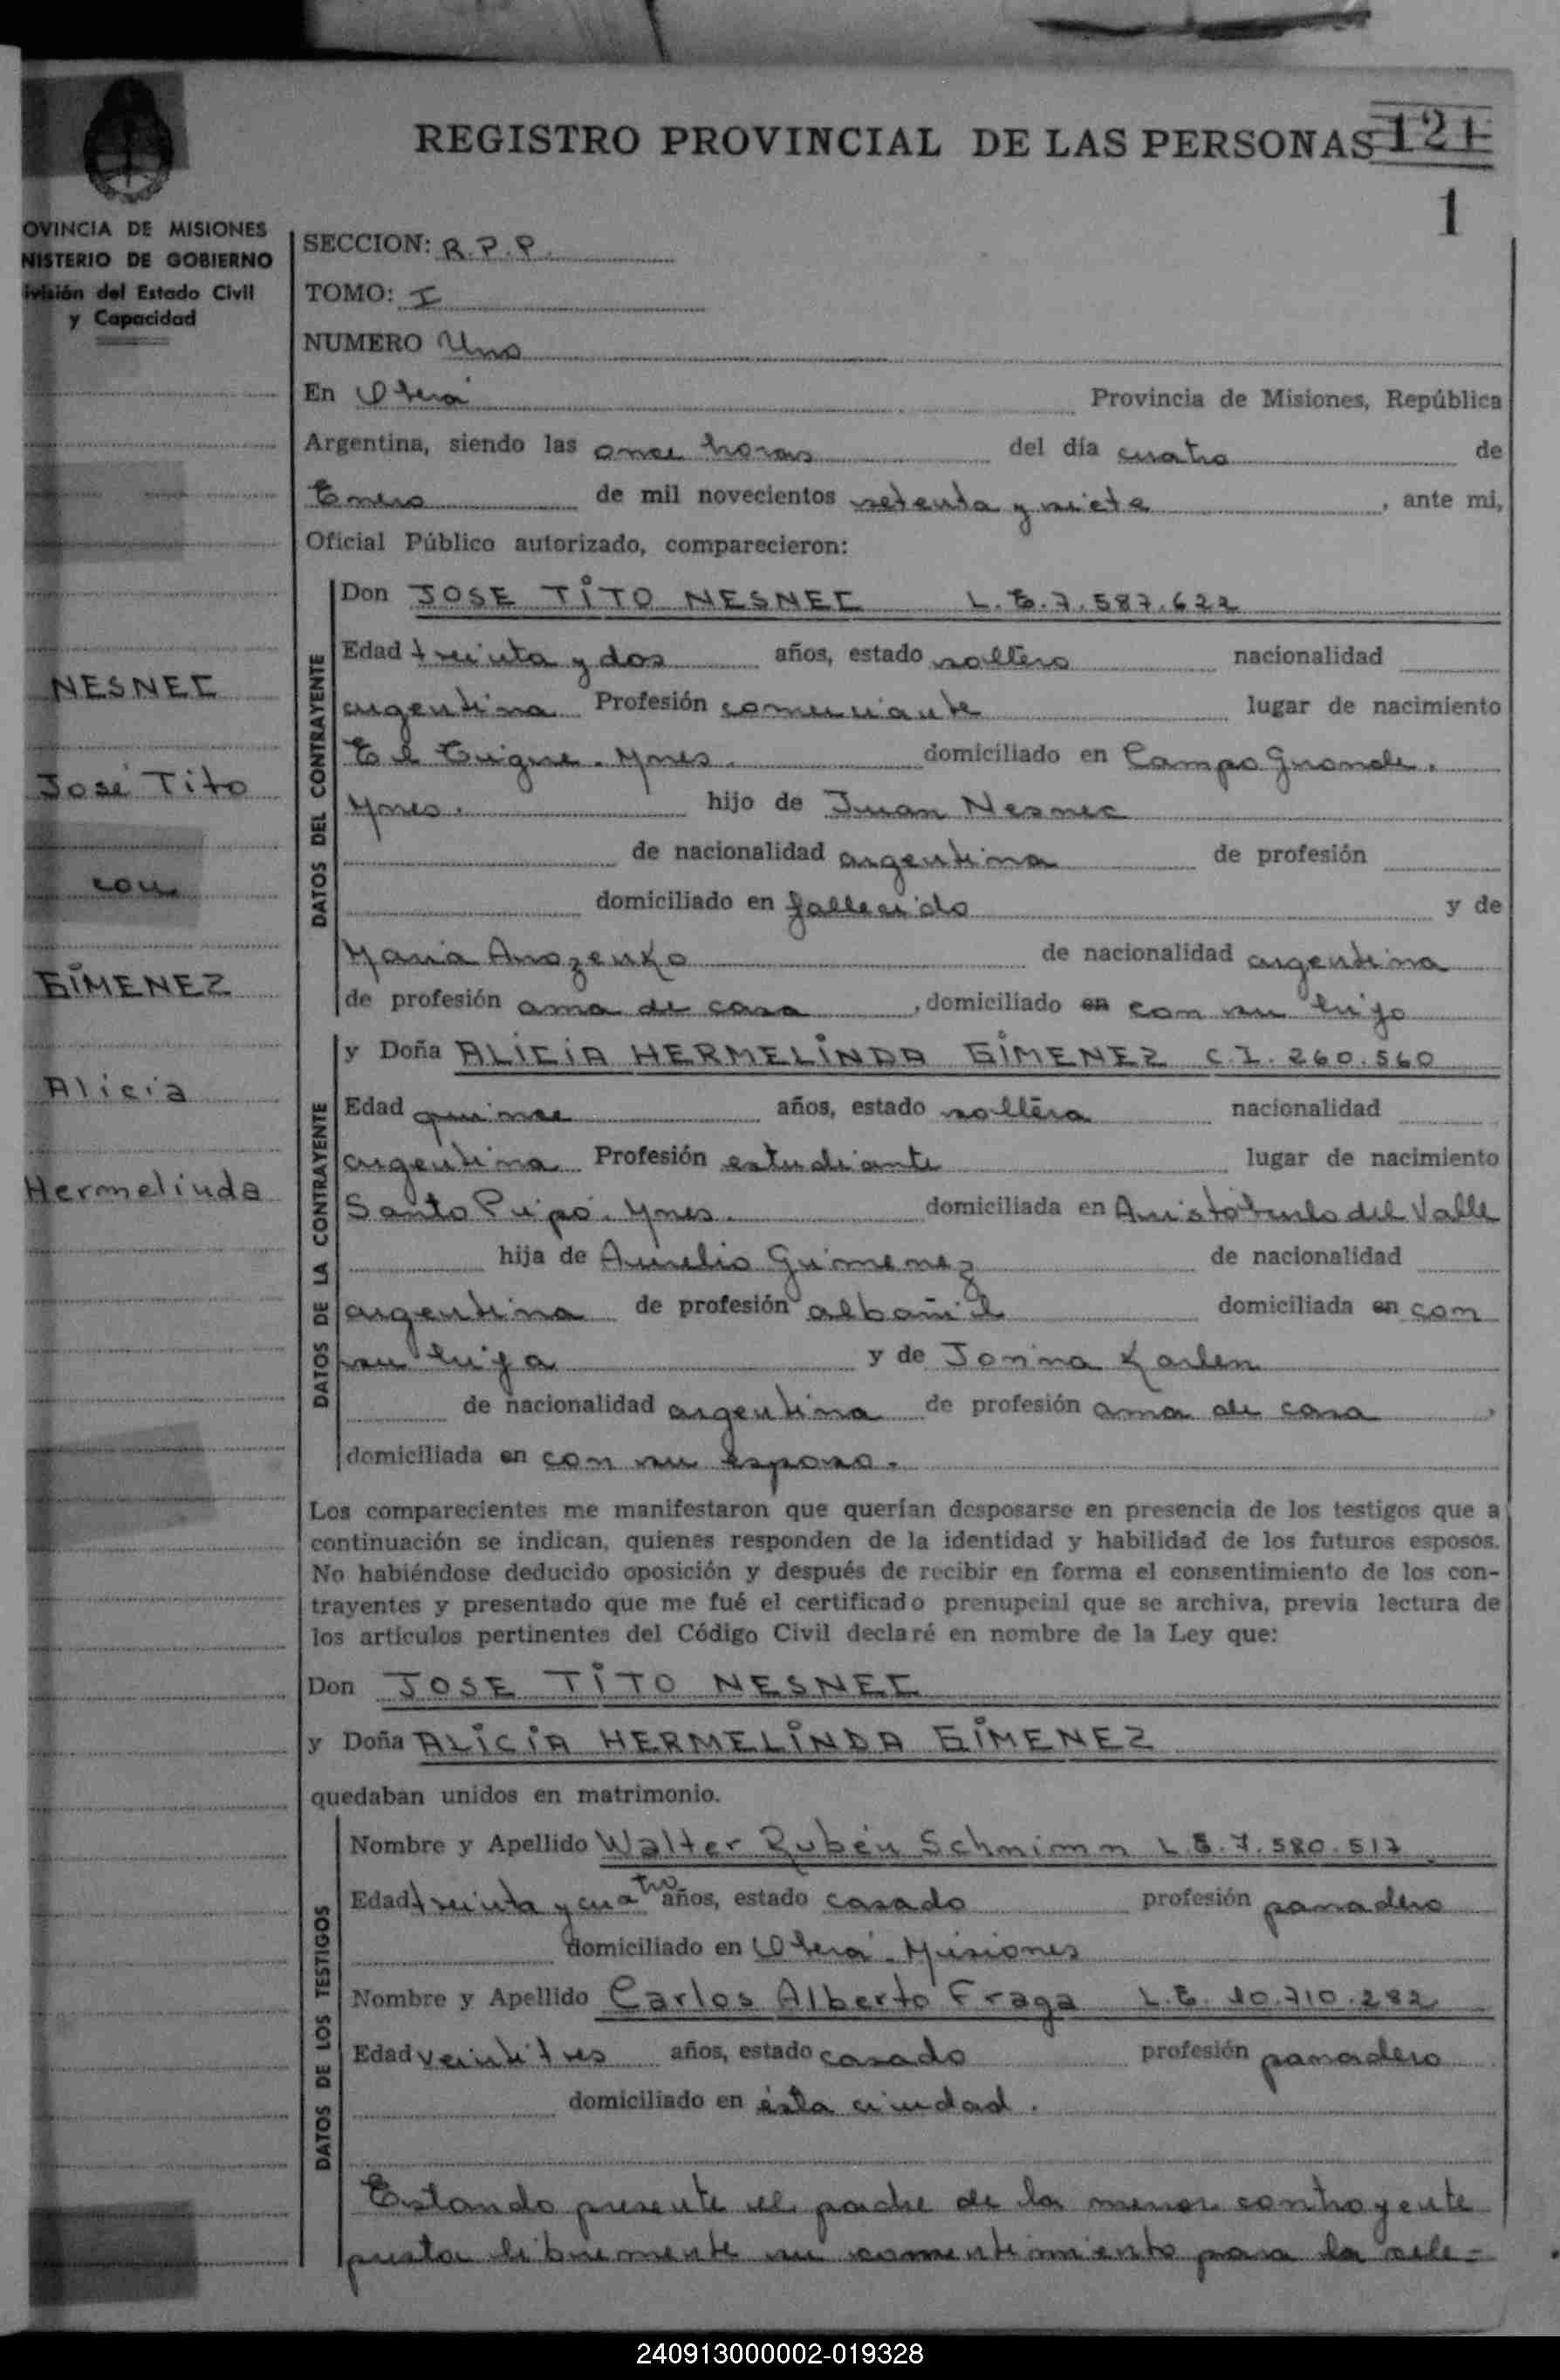 REGISTRO PROVINCIAL DE LAS PERSONAS 121
1
OVINCIA DE MISIONES
NISTERIO DE GOBIERNO
ivisión del Estado Civil
y Capacidad
NESNEC
José Tito
con
GIMENEZ
Alicia
Hermelinda
SECCION: R.P.P.
TOMO: I
NUMERO Uno
En Oberá Provincia de Misiones, República
Argentina, siendo las once horas del día cuatro de
Enero de mil novecientos setenta y siete, ante mi,
Oficial Público autorizado, comparecieron:
DATOS DEL CONTRAYENTE
Don JOSE TITO NESNEC L.E. 7.587.622
Edad treinta y dos años, estado soltero nacionalidad
argentina Profesión comerciante lugar de nacimiento
El Mnes. domiciliado en Campo Grande.
Mnes. hijo de Juan Nesnec
de nacionalidad argentina de profesión
domiciliado en fallecido y de
Maria de nacionalidad argentina
de profesión ama de casa, domiciliado en con su hijo
DATOS DE LA CONTRAYENTE
y Doña ALICIA HERMELINDA GIMENEZ C.I. 260.560
Edad quince años, estado soltera nacionalidad
argentina Profesión estudiante lugar de nacimiento
Santo Pipó. Mnes. domiciliada en Aristóbulo del Valle
hija de Aurelio Gimenez de nacionalidad
argentina de profesión albañil domiciliada en con
su hija y de Jorina Karlen
de nacionalidad argentina de profesión ama de casa,
domiciliada en con su esposo.
Los comparecientes me manifestaron que querían desposarse en presencia de los testigos que a
continuación se indican, quienes responden de la identidad y habilidad de los futuros esposos.
No habiéndose deducido oposición y después de recibir en forma el consentimiento de los con-
trayentes y presentado que me fué el certificado prenupcial que se archiva, previa lectura de
los artículos pertinentes del Código Civil declaré en nombre de la Ley que:
Don JOSE TITO NESNEC
y Doña ALICIA HERMELINDA GIMENEZ
quedaban unidos en matrimonio.
DATOS DE LOS TESTIGOS
Nombre y Apellido Walter Rubén L.E. 7.580.517
Edad treinta y cuatro años, estado casado profesión panadero
domiciliado en Oberá. Misiones
Nombre y Apellido Carlos Alberto Fraga L.E. 10.710.282
Edad veintitres años, estado casado profesión panadero
domiciliado en ésta ciudad.
Estando presente el padre de la menor contrayente
presta libremente su consentimiento para la cele=
240913000002-019328